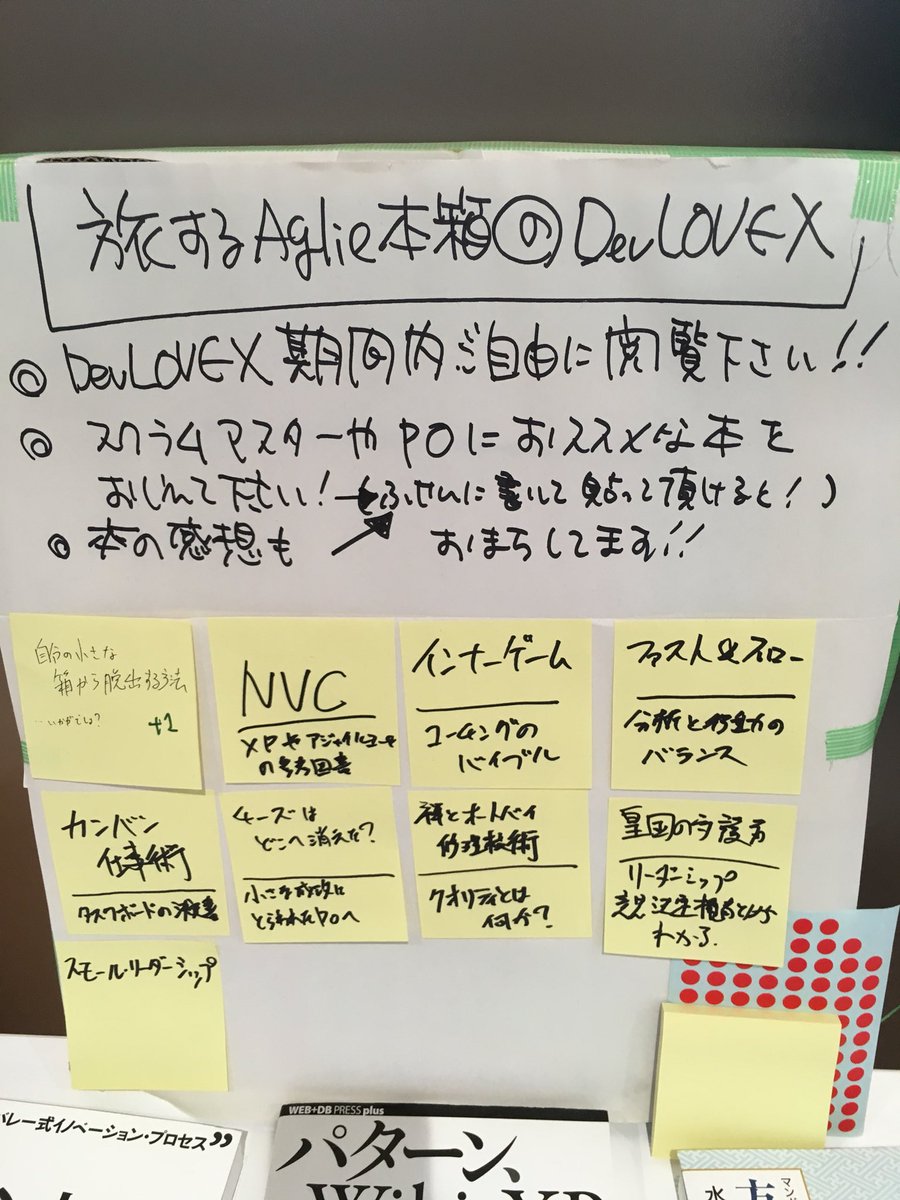 旅するAglie本箱の DevLOVE X
◎ DevLOVE X 期間内ご自由に閲覧下さい!!
◎ スクラムマスターや POに おススメな本を
おしえて下さい! (ふせんに書いて貼って頂けると!)
◎ 本の感想も おまちしてます!!
自分の小さな
箱から脱出する方法
…いかがでしょ?
+1
NVC
XPやアジャイルコーチ
の参考図書
インナーゲーム
コーチングの
バイブル
ファスト&スロー
分析と行動の
バランス
カンバン
仕事術
タスクボードの
チーズは
どこへ消えた?
小さな成功に
とらわれたPOへ
禅とオートバイ
修理技術
クオリティとは
何か?
皇国の守護者
リーダーシップ
わかる。
スモール・リーダーシップ
バレー式イノベーション・プロセス”
WEB+DB PRESS plus
パターン、
Wiki、XP
マン
水